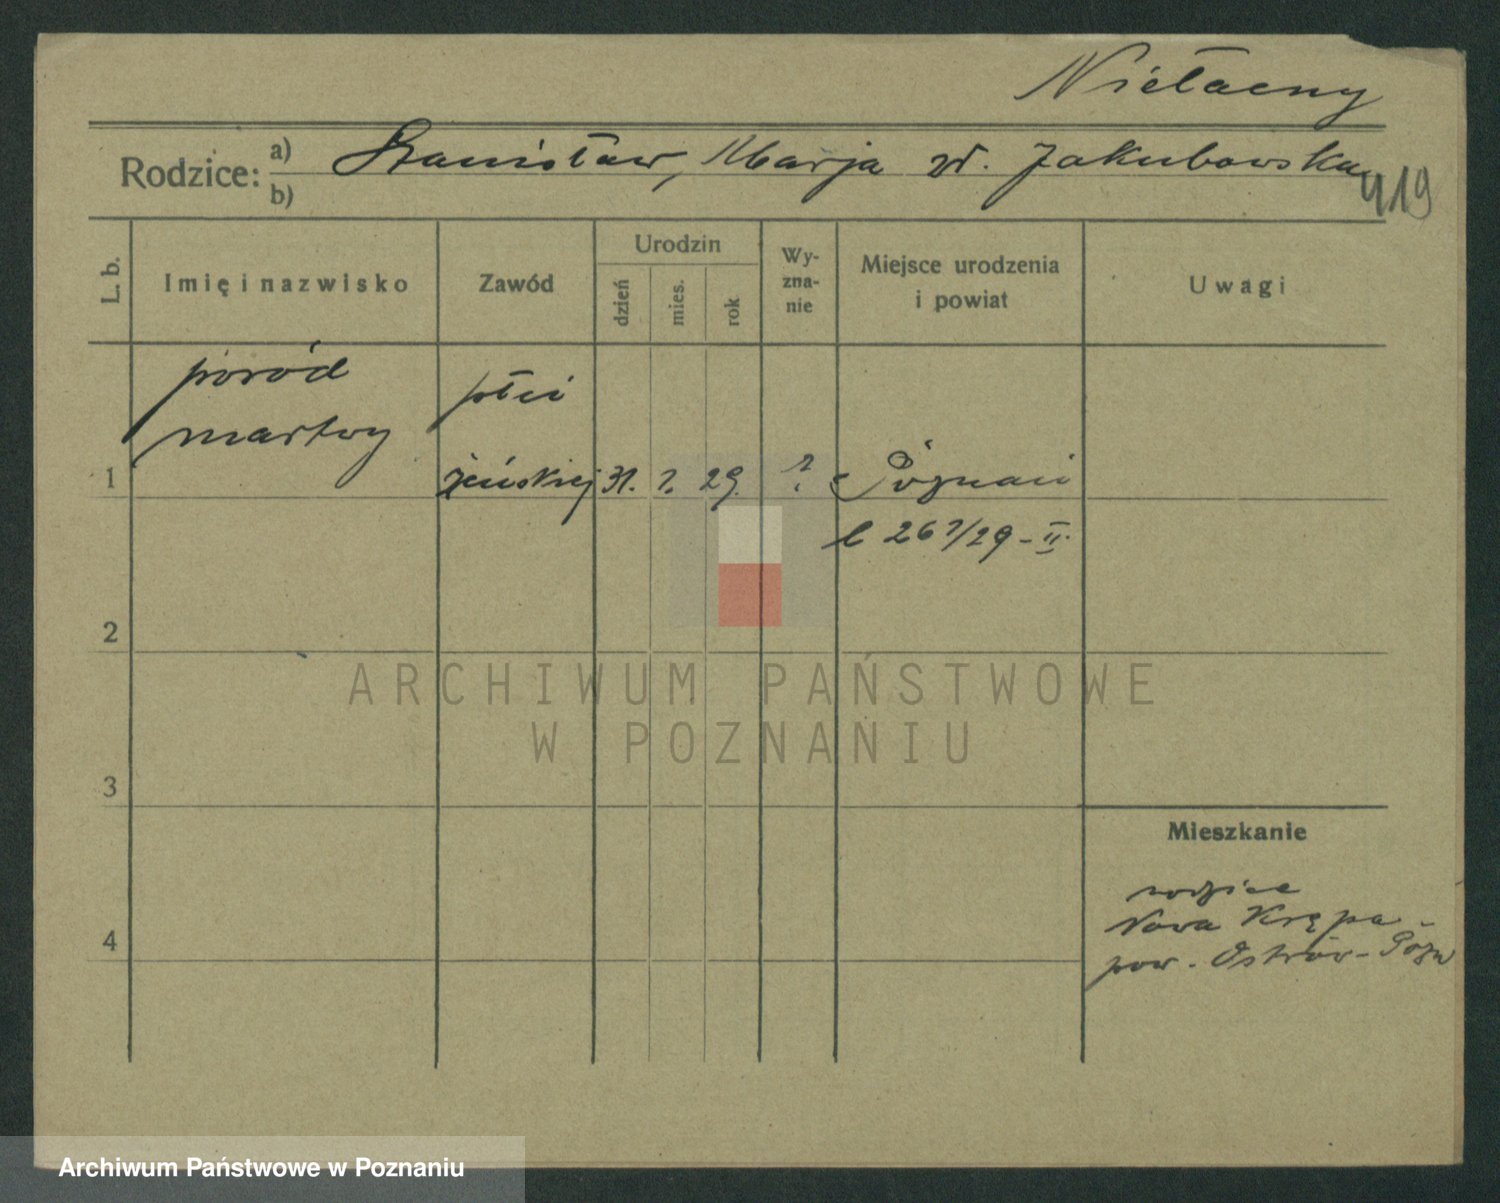 Niełacny
Rodzice: a) Stanisław, Marja zd. Jakubowska
b)
419
L. b.
Imię i nazwisko
Zawód
Urodzin
dzień
mies.
rok
Wy-
zna-
nie
Miejsce urodzenia
i powiat
Uwagi
poród
martwy
płci
żeńskiej
1
31. 7. 29. ? Poznań
l 267/29 - II.
2
ARCHIWUM PAŃSTWOWE
W POZNANIU
3
Mieszkanie
rodzice
Nowa Krępa -
pow. Ostrów - Pozn
4
Archiwum Państwowe w Poznaniu